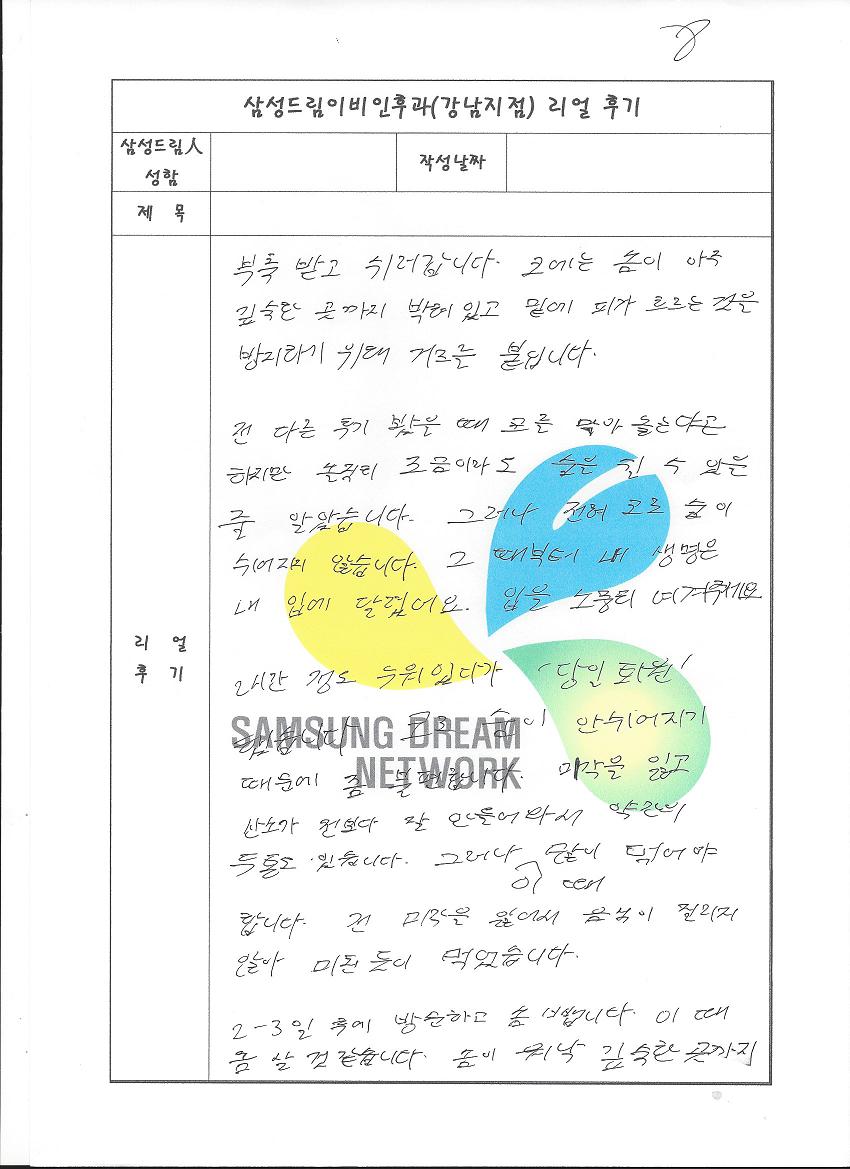 삼성드림이비인후과(강남지점) 리얼 후기
삼성드림人
성함
작성날짜
제 목
리 얼
후 기
부축 받고 쉬러갑니다. 코에는 솜이 아주
깊숙한 곳까지 박혀 있고 밑에 피가 흐르는 것을
방지하기 위해 거즈를 붙입니다.
전 다른 후기 봤을 때 코를 막아 놓는다곤
하지만 솔직히 조금이라도 숨은 쉴 수 있을
줄 알았습니다. 그러나 전혀 코로 숨이
쉬어지지 않습니다. 그 때부터 내 생명은
내 입에 달렸어요. 입을 소중히 여겨주세요
2시간 정도 누워있다가 '당일 퇴원'
했습니다 코로 숨이 안쉬어지기
때문에 좀 불편합니다. 미각을 잃고
산소가 전보다 잘 안들어와서 약간의
두통도 있습니다. 그러나 많이 먹어야
이 때
합니다. 전 미각을 잃어서 음식이 질리지
않아 미친듯이 먹었습니다.
2-3일 후에 방문하고 솜 뺍니다. 이 때
좀 살 것 같습니다. 솜이 워낙 깊숙한 곳까지
SAMSUNG DREAM
NETWORK